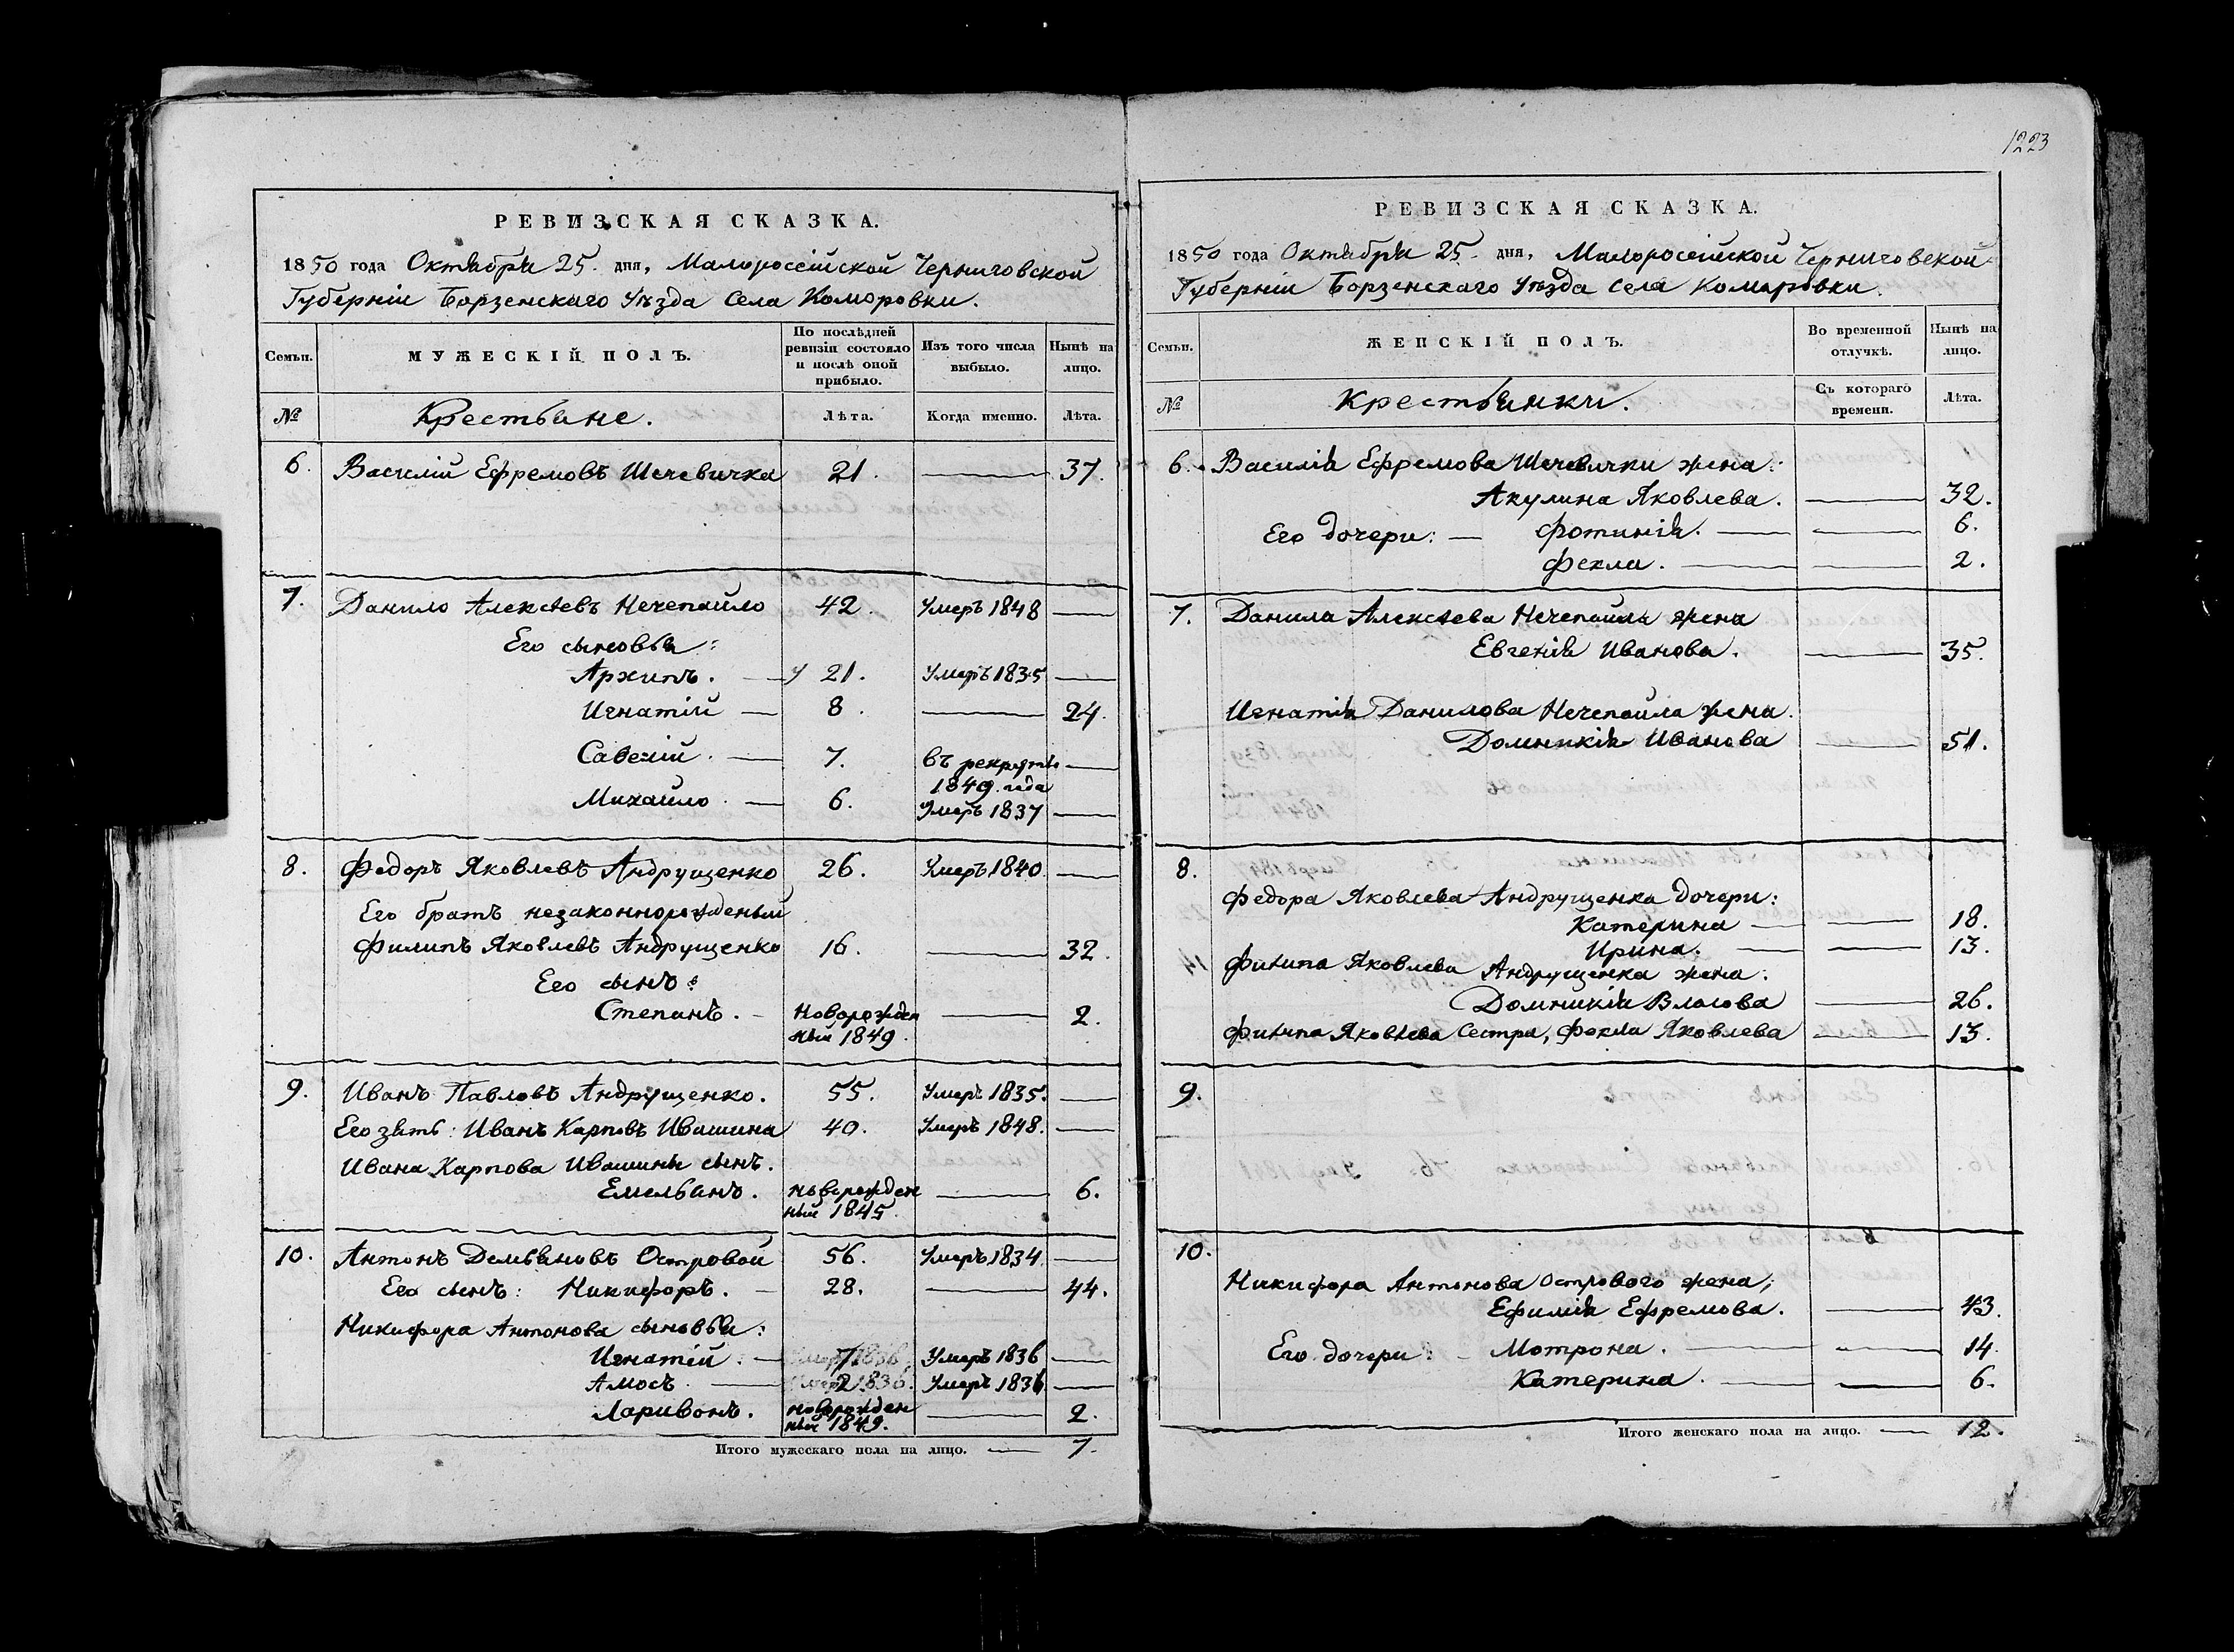 РЕВИЗСКАЯ СКАЗКА.
1850 года Октября 25. дня, Малоросcійской Черниговской
Губерніи Борзенскаго Уѣзда Села Коморовки.
Семьи. МУЖЕСКІЙ ПОЛЪ. По послѣдней ревизіи состояло и послѣ оной прибыло. Изъ того числа выбыло. Нынѣ на лицо.
№ Крестьяне. Лѣта. Когда именно. Лѣта.
6. Василій Ефремовъ Шечевичка 21. 37.
7. Данило Алексѣевъ Нечепайло 42. Умеръ 1848
Его сыновья:
Архипъ. 21. Умеръ 1835
Игнатій 8. 24.
Савелій. 7. въ рекруты
1849. года
Михайло. 6. Умеръ 1837
8. Федоръ Яковлевъ Андрущенко 26. Умеръ 1840
Его братъ незаконнорожденый
Филипъ Яковлевъ Андрущенко 16. 32.
Его сынъ:
Степанъ. Новорожден 2.
ный 1849.
9. Иванъ Павловъ Андрущенко. 55. Умеръ 1835.
Его зять: Иванъ Карповъ Ивашина 40. Умеръ 1848.
Ивана Карпова Ивашины сынъ.
Емельянъ. новорожден 6.
ный 1845.
10. Антонъ Демьяновъ Островой 56. Умеръ 1834.
Его сынъ: Никифоръ. 28. 44.
Никифора Антонова сыновья:
Игнатій. 7 Умеръ 1836
Амосъ 2 Умеръ 1836
Ларивонъ. новорожден 2.
ный 1849.
Итого мужескаго пола на лицо. 7.
1223
РЕВИЗСКАЯ СКАЗКА.
1850 года Октября 25. дня, Малоросейской Черниговской
Губерніи Борзенскаго Уѣзда Села Комаровки.
Семьи. ЖЕНСКІЙ ПОЛЪ. Во временной отлучкѣ. Нынѣ на лицо.
№ Крестьянки. Съ котораго времени. Лѣта.
6. Василія Ефремова Шечевички жена:
Акулина Яковлева. 32.
Его дочери: Фотинія. 6.
Фекла. 2.
7. Данила Алексѣева Нечепайла жена
Евгенія Иванова. 35.
Игнатія Данилова Нечепайла жена.
Домникія Иванова 51.
8.
Федора Яковлева Андрущенка дочери:
Катерина 18.
Ирина. 13.
Филипа Яковлева Андрущенка жена:
Домникія Власова 26.
Филипа Яковлева Сестра, Фекла Яковлева 13.
9.
10.
Никифора Антонова Острового жена;
Ефимія Ефремова. 43.
Его дочери: Мотрона. 14.
Катерина. 6.
Итого женскаго пола на лицо. 12.